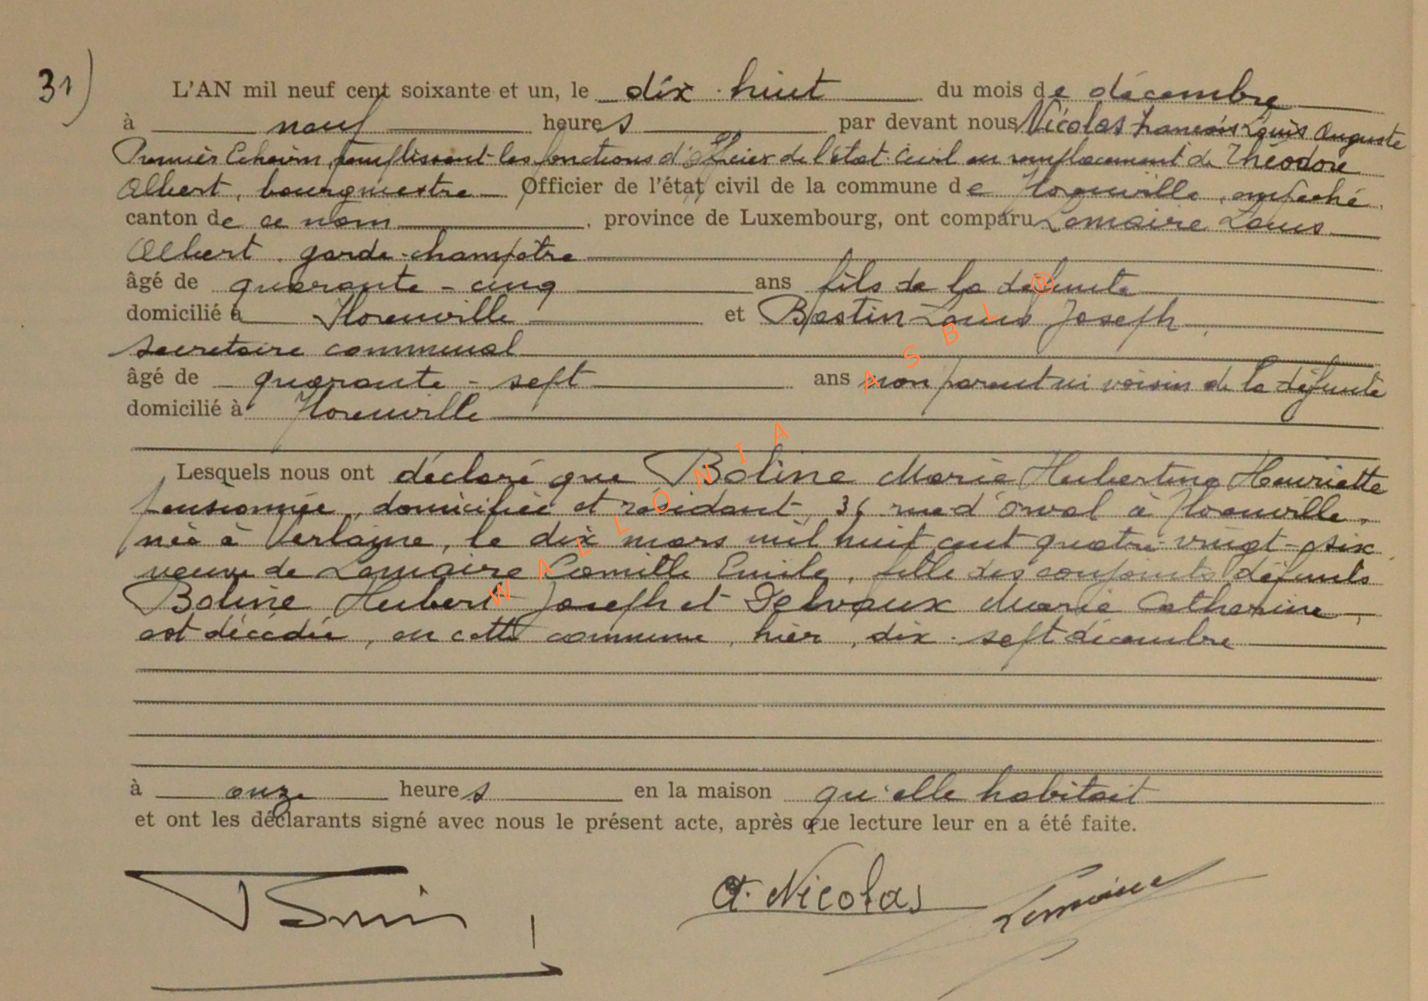 31)
L'AN mil neuf cent soixante et un, le dix-huit du mois de décembre
à neuf heures par devant nous Nicolas François Louis Auguste
Premier Echevin, remplissant les fonctions d'officier de l'état civil en remplacement de Théodore
Albert, bourgmestre Officier de l'état civil de la commune de Florenville, empêché,
canton de ce nom, province de Luxembourg, ont comparu Lemaire Louis
Albert, garde-champêtre
âgé de quarante-cinq ans fils de la défunte
domicilié à Florenville et Bastin Louis Joseph
secrétaire communal
âgé de quarante-sept ans non parent ni voisin de la défunte
domicilié à Florenville
Lesquels nous ont déclaré que Boline Marie Hubertine Henriette
pensionnée, domiciliée et résidant, 36 rue d'Orval à Florenville,
née à Verlaine, le dix mars mil huit cent quatre-vingt-six
veuve de Lemaire Camille Emile, fille des conjoints défunts
Boline Hubert Joseph et Delvaux Marie Catherine
est décédée, en cette commune, hier, dix-sept décembre
à onze heures en la maison qu'elle habitait
et ont les déclarants signé avec nous le présent acte, après que lecture leur en a été faite.
A. Nicolas Lemaire
WALLONIA ASBL ©